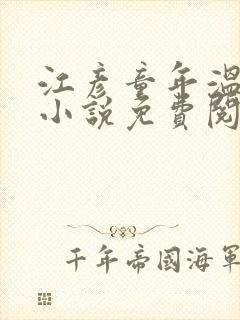 江彦童年溫
小說免費閱
千年帝國海軍